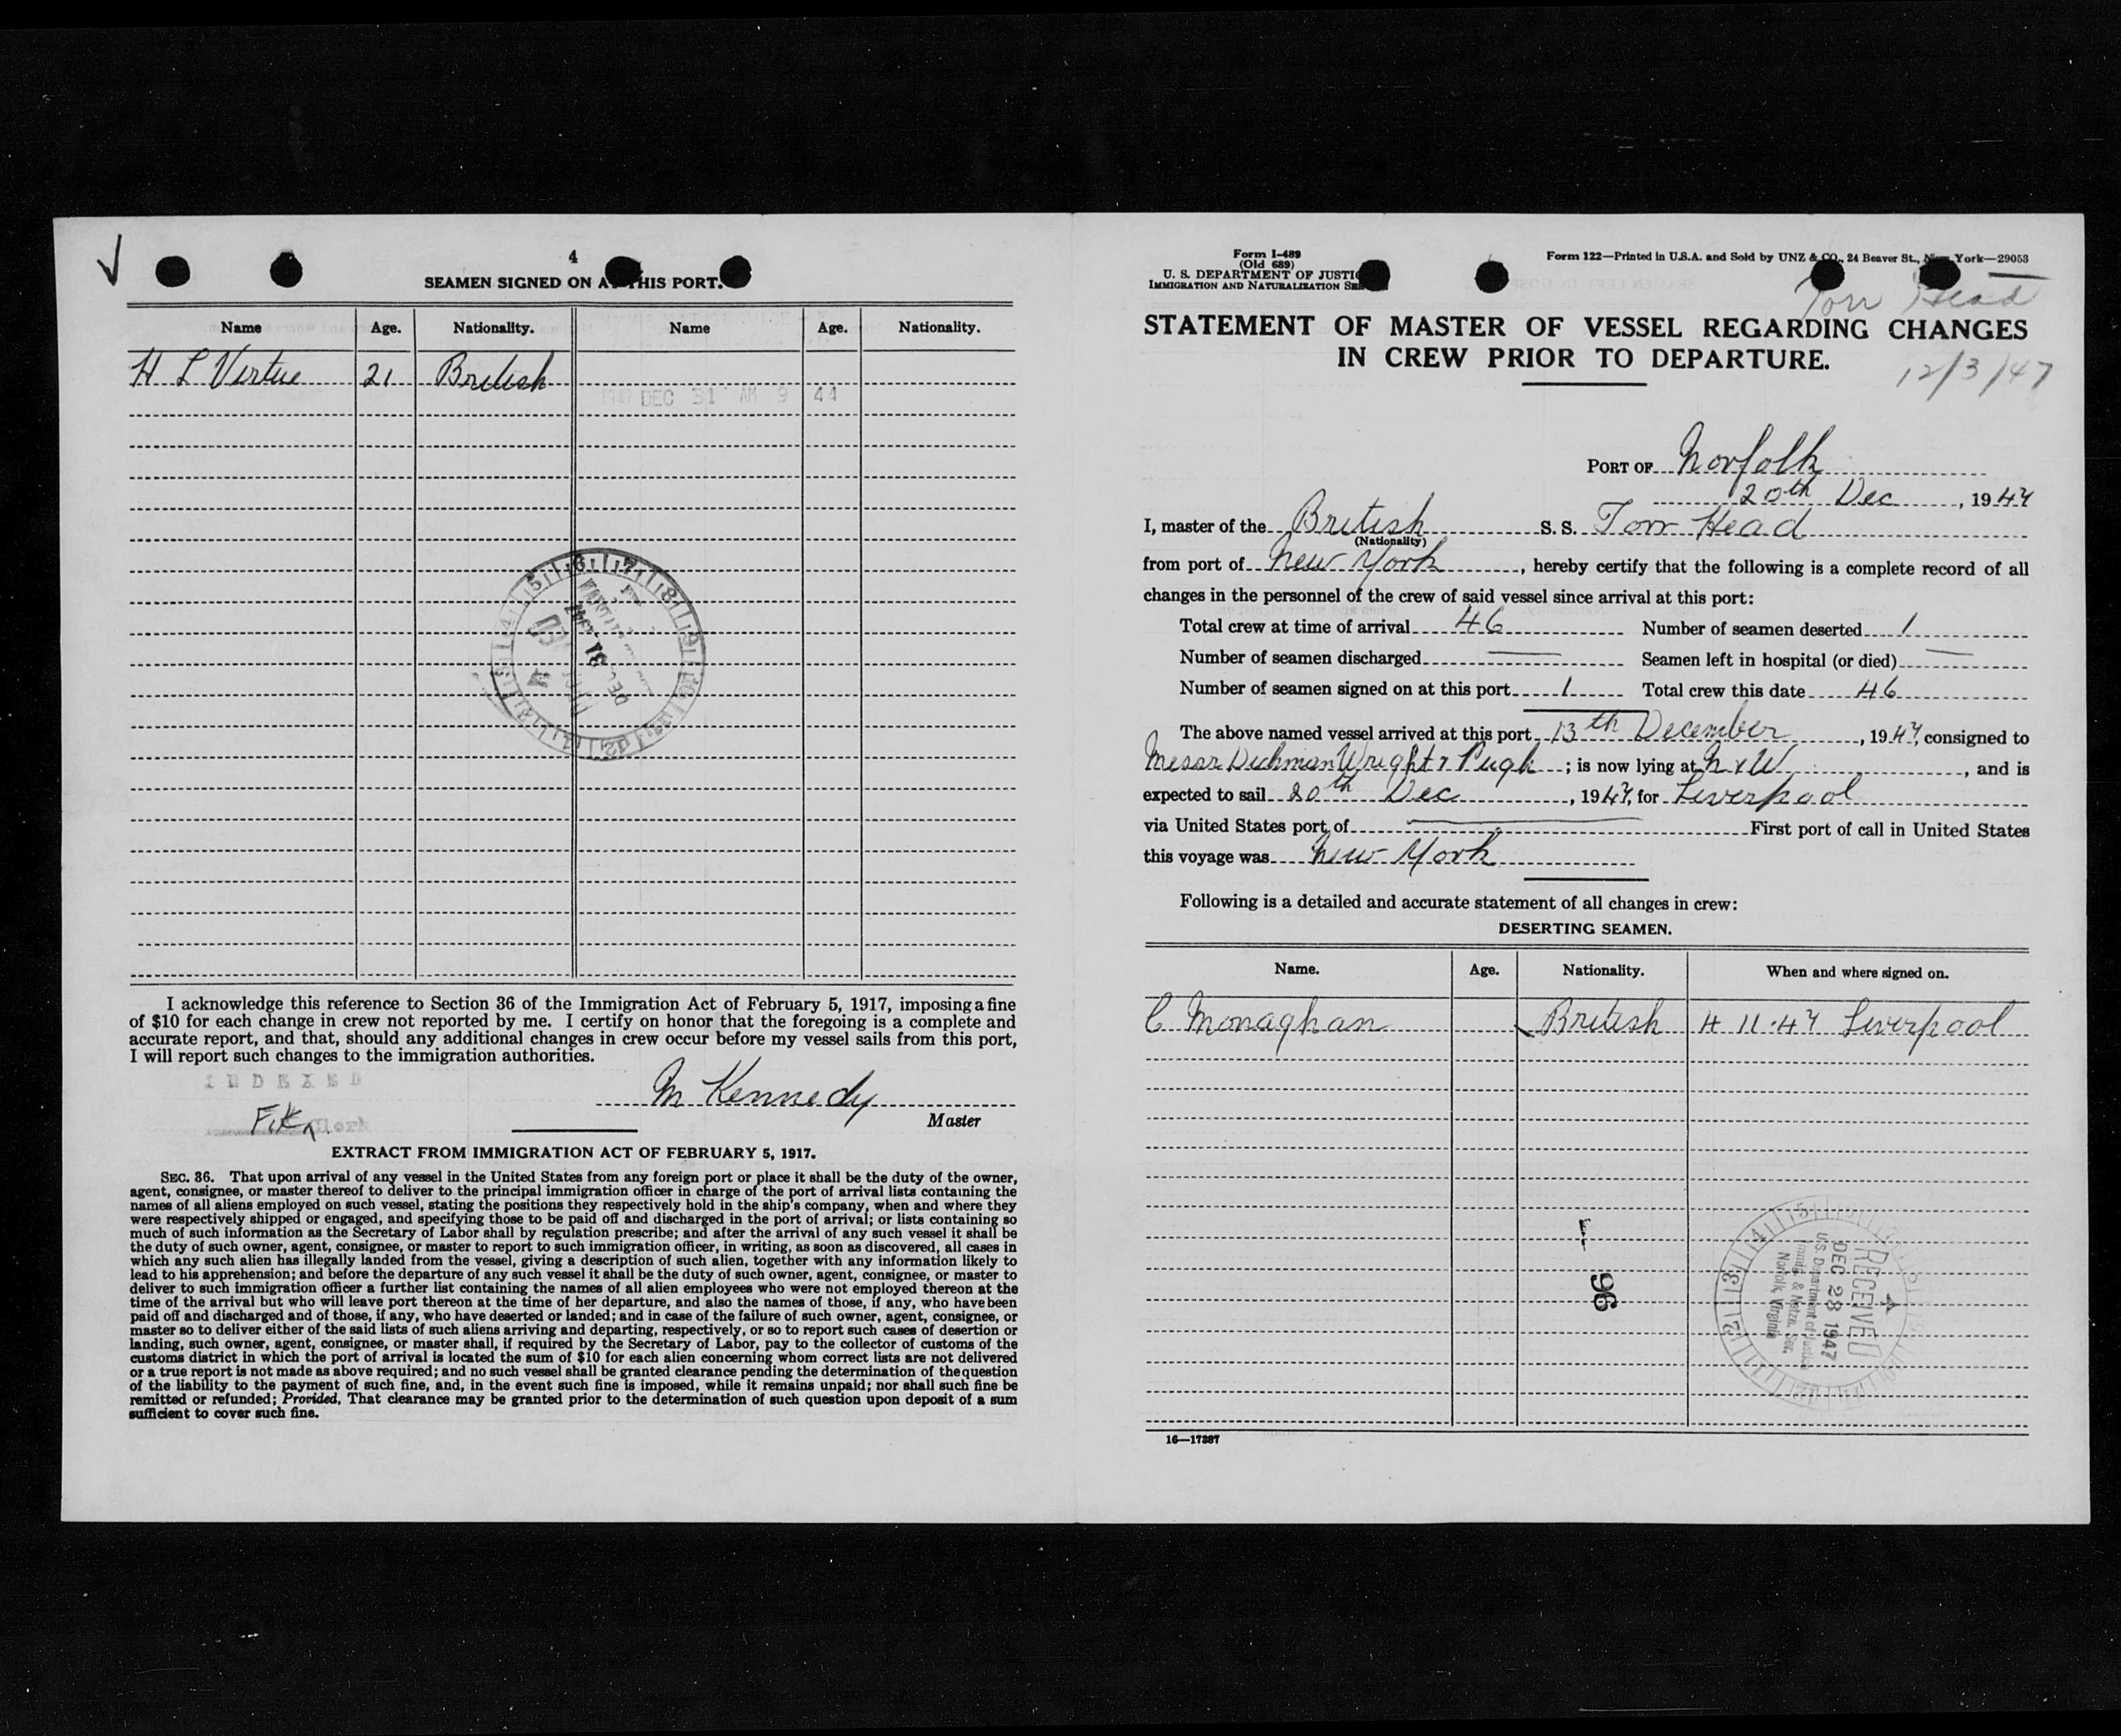 4
SEAMEN SIGNED ON AT THIS PORT.
Name Age. Nationality. Name Age. Nationality.
H L Virtue 21 British
1947 DEC 31 AM 9 44
I acknowledge this reference to Section 36 of the Immigration Act of February 5, 1917, imposing a fine
of $10 for each change in crew not reported by me. I certify on honor that the foregoing is a complete and
accurate report, and that, should any additional changes in crew occur before my vessel sails from this port,
I will report such changes to the immigration authorities.
INDEXED
M Kennedy
Clerk
Master
EXTRACT FROM IMMIGRATION ACT OF FEBRUARY 5, 1917.
SEC. 36. That upon arrival of any vessel in the United States from any foreign port or place it shall be the duty of the owner,
agent, consignee, or master thereof to deliver to the principal immigration officer in charge of the port of arrival lists containing the
names of all aliens employed on such vessel, stating the positions they respectively hold in the ship's company, when and where they
were respectively shipped or engaged, and specifying those to be paid off and discharged in the port of arrival; or lists containing so
much of such information as the Secretary of Labor shall by regulation prescribe; and after the arrival of any such vessel it shall be
the duty of such owner, agent, consignee, or master to report to such immigration officer, in writing, as soon as discovered, all cases in
which any such alien has illegally landed from the vessel, giving a description of such alien, together with any information likely to
lead to his apprehension; and before the departure of any such vessel it shall be the duty of such owner, agent, consignee, or master to
deliver to such immigration officer a further list containing the names of all alien employees who were not employed thereon at the
time of the arrival but who will leave port thereon at the time of her departure, and also the names of those, if any, who have been
paid off and discharged and of those, if any, who have deserted or landed; and in case of the failure of such owner, agent, consignee, or
master so to deliver either of the said lists of such aliens arriving and departing, respectively, or so to report such cases of desertion or
landing, such owner, agent, consignee, or master shall, if required by the Secretary of Labor, pay to the collector of customs of the
customs district in which the port of arrival is located the sum of $10 for each alien concerning whom correct lists are not delivered
or a true report is not made as above required; and no such vessel shall be granted clearance pending the determination of the question
of the liability to the payment of such fine, and, in the event such fine is imposed, while it remains unpaid; nor shall such fine be
remitted or refunded; Provided, That clearance may be granted prior to the determination of such question upon deposit of a sum
sufficient to cover such fine.
Form I-489
(Old 689)
U. S. DEPARTMENT OF JUSTICE
IMMIGRATION AND NATURALIZATION SERVICE
Form 122—Printed in U.S.A. and Sold by UNZ & CO., 24 Beaver St., New York—29053
Torr Head
STATEMENT OF MASTER OF VESSEL REGARDING CHANGES
IN CREW PRIOR TO DEPARTURE.
12/3/47
PORT OF Norfolk
20th Dec, 1947
I, master of the British S. S. Torr Head
(Nationality)
from port of New York, hereby certify that the following is a complete record of all
changes in the personnel of the crew of said vessel since arrival at this port:
Total crew at time of arrival 46 Number of seamen deserted 1
Number of seamen discharged — Seamen left in hospital (or died) —
Number of seamen signed on at this port 1 Total crew this date 46
The above named vessel arrived at this port 13th December, 1947, consigned to
Messr Dichman Wright & Pugh; is now lying at N & W, and is
expected to sail 20th Dec, 1947, for Liverpool
via United States port of — First port of call in United States
this voyage was New York
Following is a detailed and accurate statement of all changes in crew:
DESERTING SEAMEN.
Name. Age. Nationality. When and where signed on.
C Monaghan British 4 11.47 Liverpool
96
RECEIVED
DEC 28 1947
U.S. Department of Justice
Immig. & Natzn. Ser.
Norfolk, Virginia
16—17397